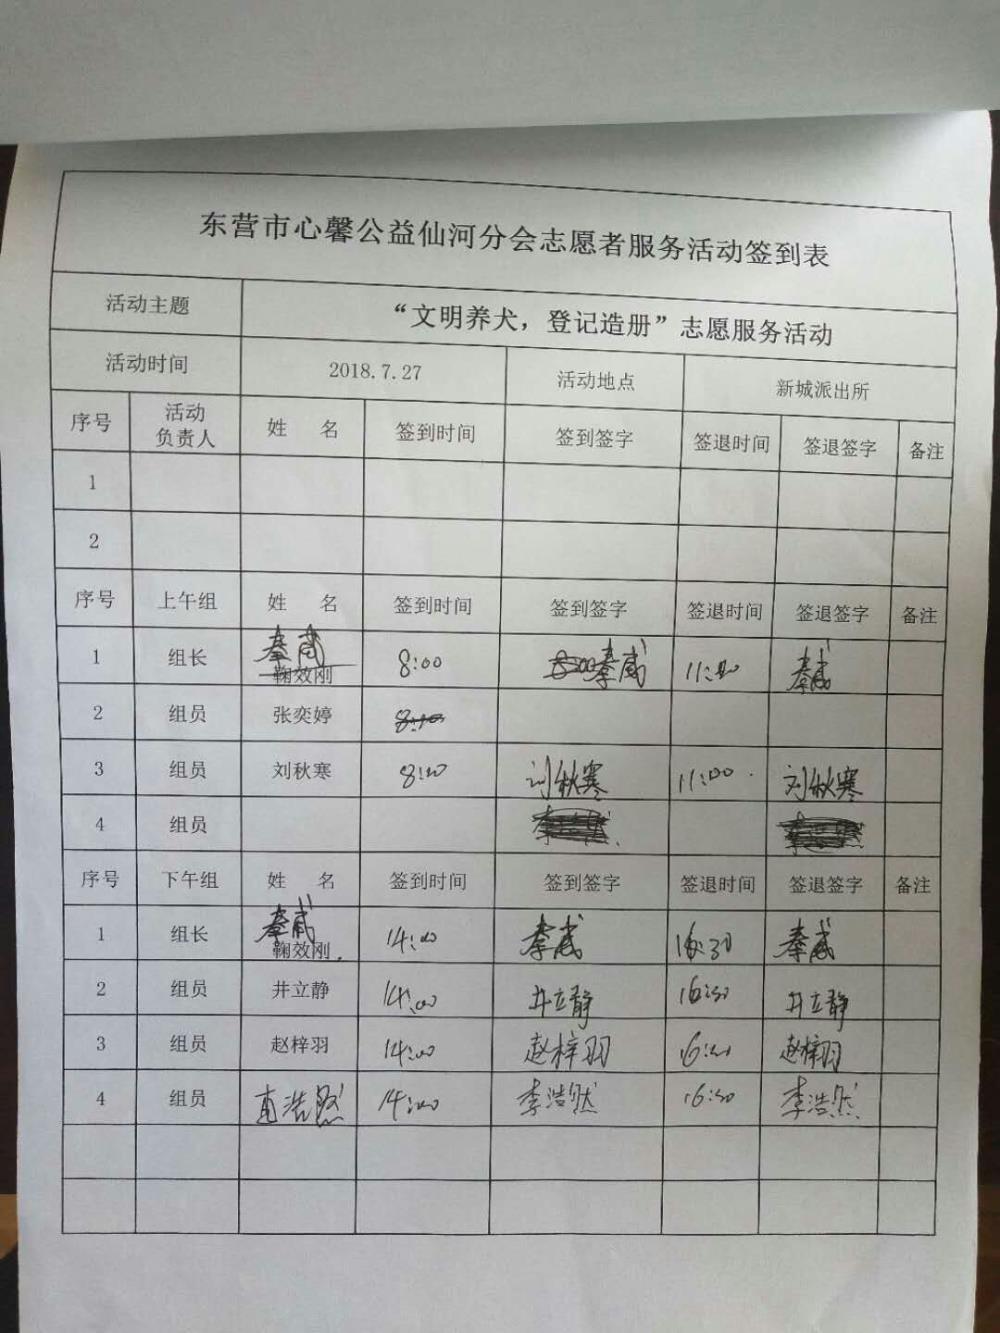 东营市心馨公益仙河分会志愿者服务活动签到表
活动主题 “文明养犬，登记造册”志愿服务活动
活动时间 2018.7.27 活动地点 新城派出所
序号 活动负责人 姓 名 签到时间 签到签字 签退时间 签退签字 备注
1
2
序号 上午组 姓 名 签到时间 签到签字 签退时间 签退签字 备注
1 组长 秦威 鞠效刚 8:00 秦威 秦威
2 组员 张奕婷
3 组员 刘秋寒 8:00 刘秋寒 11:00 刘秋寒
4 组员
序号 下午组 姓 名 签到时间 签到签字 签退时间 签退签字 备注
1 组长 秦威 鞠效刚 14:00 秦威 16:30 秦威
2 组员 井立静 14:00 井立静 16:30 井立静
3 组员 赵梓羽 14:00 赵梓羽 赵梓羽
4 组员 李浩然 14:00 李浩然 16:30 李浩然